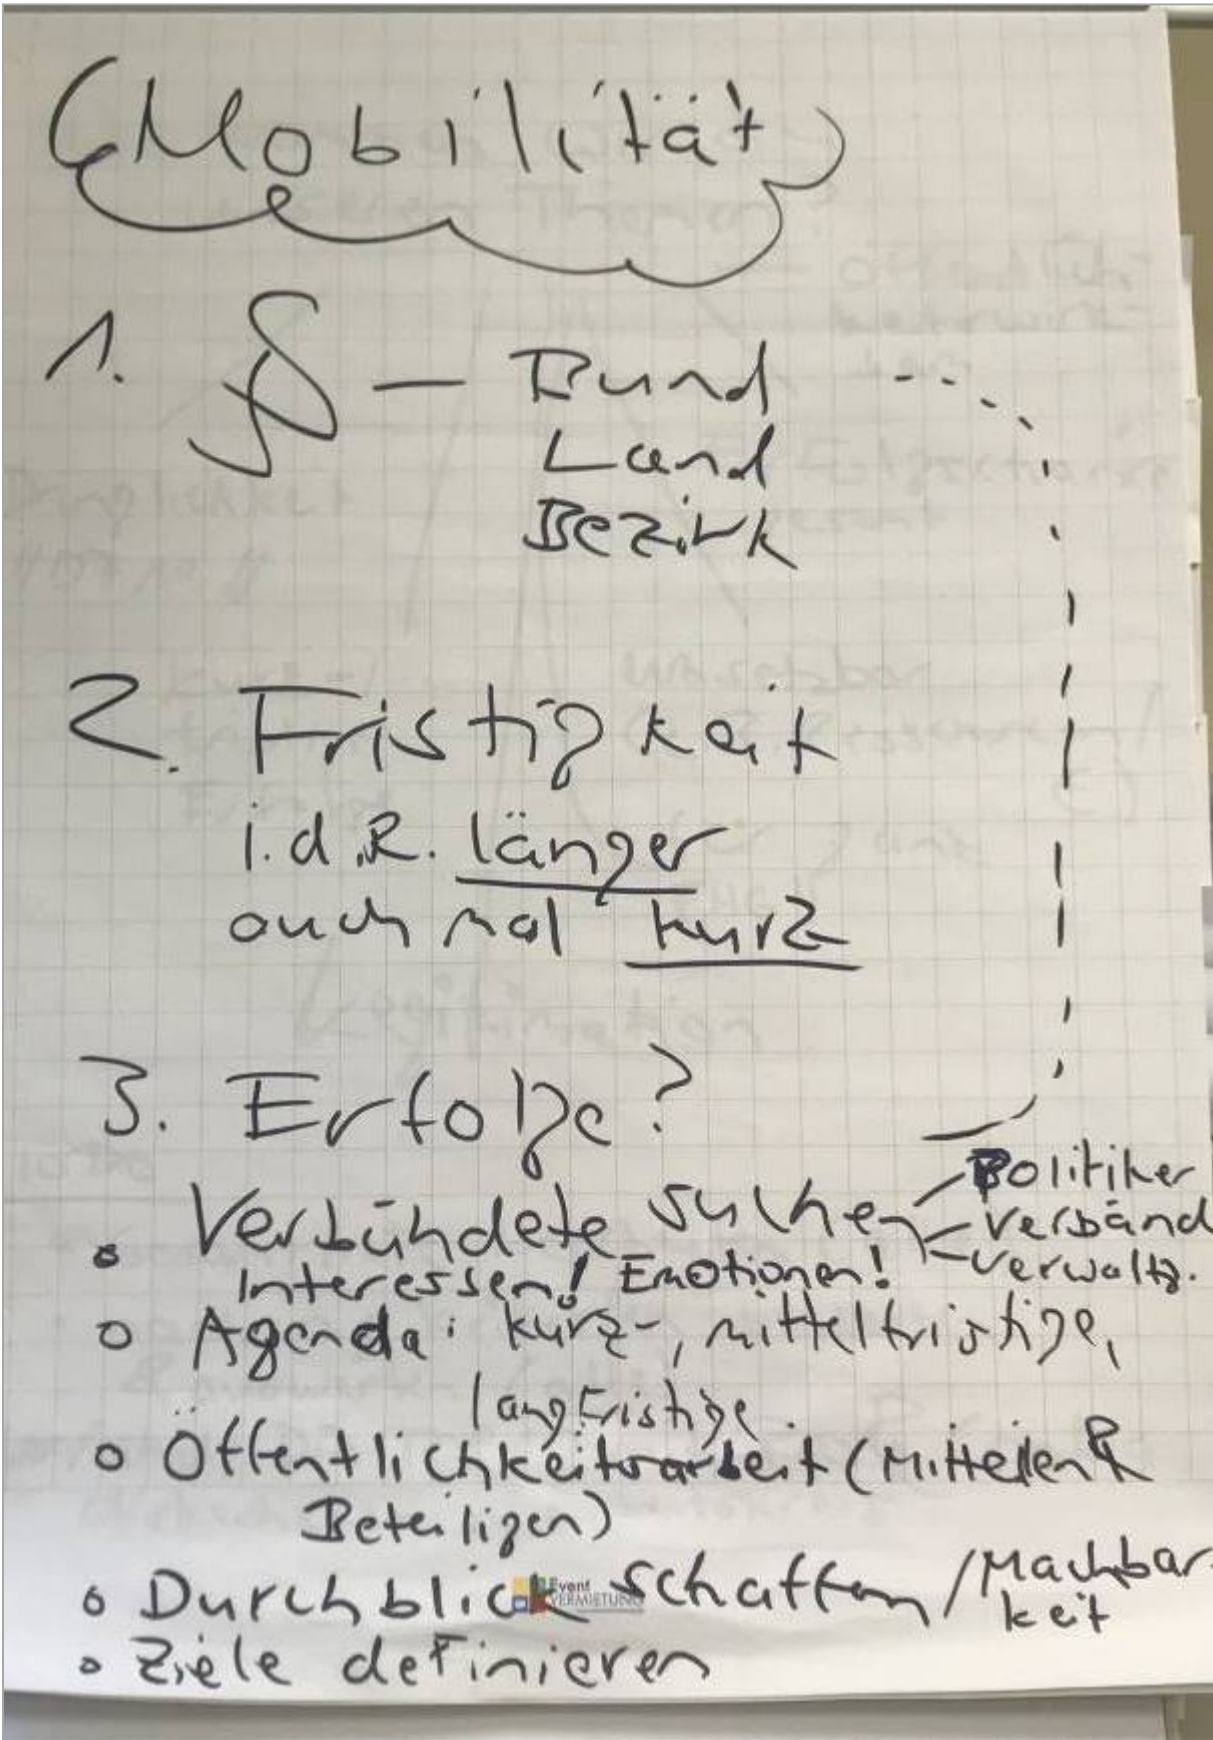 Mobilität
1. § – Bund
Land
Bezirk
2. Fristigkeit
i.d.R. länger
auch mal kurz
3. Erfolge?
• Verbündete suchen
Politiker
Verbänd
Verwaltg.
Interessen! Emotionen!
o Agenda: kurz-, mittelfristige,
langfristige
o Öffentlichkeitsarbeit (Mitteilen &
Beteiligen)
o Durchblick schaffen / Machbar-
keit
o Ziele definieren
Event
VERMIETUNG